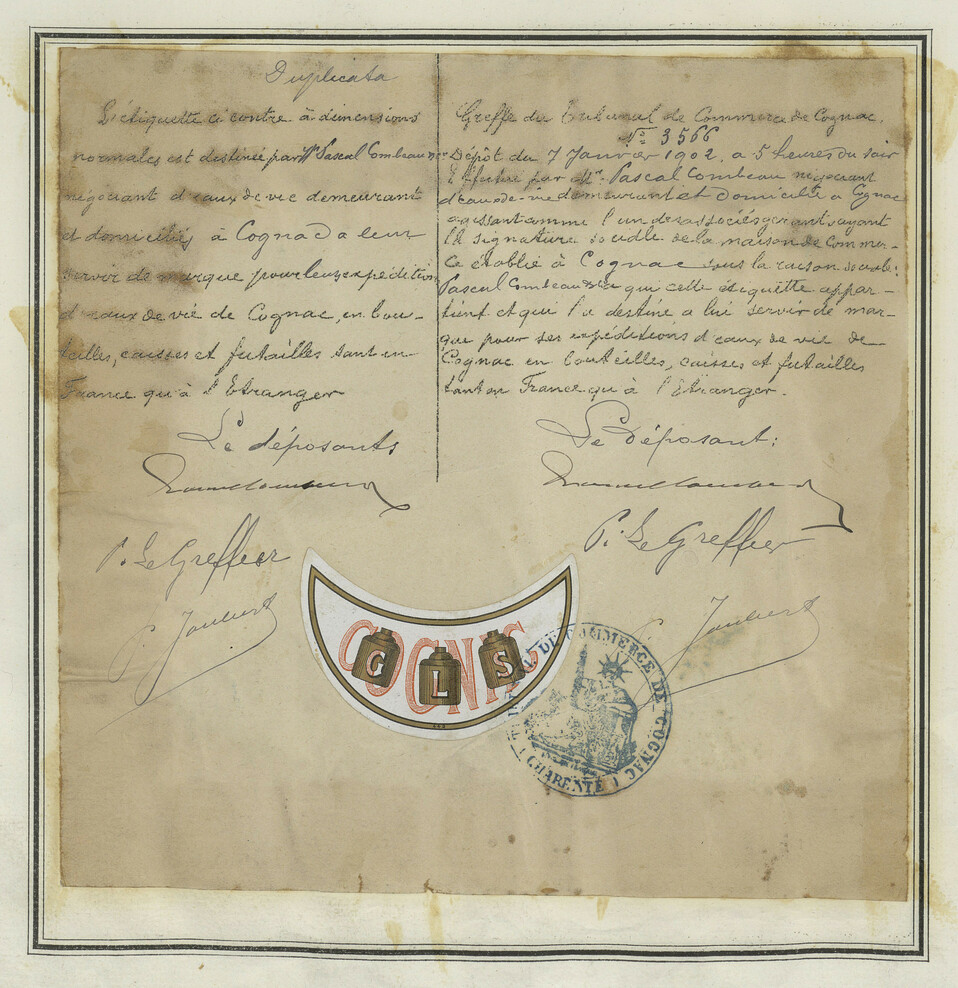 Duplicata
L'étiquette ci contre à dimensions
normales est destinée par Mrs Pascal Combeau & Cie
négociant d'eaux de vie demeurant
et domiciliés à Cognac à leur
servir de marque pour leurs expéditions
d'eaux de vie de Cognac, en bou-
teilles, caisses et futailles tant en
France qu'à l'Etranger
Le déposants
P. Le Greffier
Joubert
Greffe du Tribunal de Commerce de Cognac.
No: 3566
Dépôt du 7 Janvier 1902, à 5 heures du soir
Effectué par Mr. Pascal Combeau négociant
d'eaux-de-vie demeurant et domicilié à Cognac
agissant comme l'un des associés gerants ayant
la signature sociale de la maison de Commer-
ce établie à Cognac sous la raison sociale:
Pascal Combeau & Cie à qui cette étiquette appar-
tient et qui l'a destiné a lui servir de mar-
que pour ses expéditions d'eaux de vie de
Cognac en bouteilles, caisses et futailles
tant en France qu'à l'Etranger.
Le Déposant:
P. Le Greffier
Joubert
COGNAC
G L S
TRIBUNAL DE COMMERCE DE COGNAC
(CHARENTE)